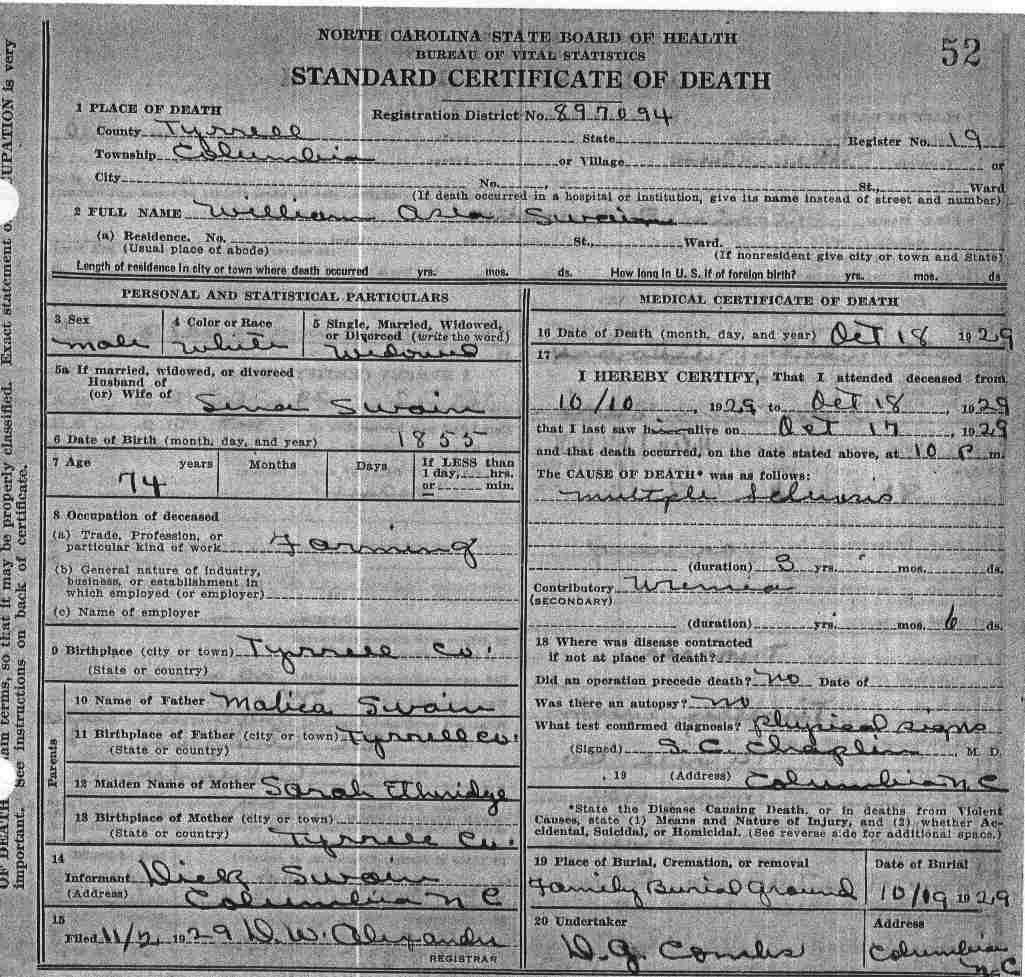 NORTH CAROLINA STATE BOARD OF HEALTH
BUREAU OF VITAL STATISTICS
52
STANDARD CERTIFICATE OF DEATH
1 PLACE OF DEATH
Registration District No. 897094
County Tyrrell State Register No. 19
Township Columbia or Village or
City No. , St., Ward
(If death occurred in a hospital or institution, give its name instead of street and number)
2 FULL NAME William Asa Swain
(a) Residence. No. St., Ward.
(Usual place of abode) (If nonresident give city or town and State)
Length of residence in city or town where death occurred yrs. mos. ds. How long in U. S. if of foreign birth? yrs. mos. ds
PERSONAL AND STATISTICAL PARTICULARS
3 Sex 4 Color or Race 5 Single, Married, Widowed, or Divorced (write the word)
male white widowed
5a If married, widowed, or divorced
Husband of
(or) Wife of Sena Swain
6 Date of Birth (month, day, and year) 1855
7 Age years Months Days If LESS than
1 day, hrs.
or min.
74
8 Occupation of deceased
(a) Trade, Profession, or
particular kind of work Farming
(b) General nature of industry,
business, or establishment in
which employed (or employer)
(c) Name of employer
9 Birthplace (city or town) Tyrrell Co.
(State or country)
Parents
10 Name of Father Malica Swain
11 Birthplace of Father (city or town) Tyrrell Co.
(State or country)
12 Maiden Name of Mother Sarah Ethridge
13 Birthplace of Mother (city or town)
(State or country) Tyrrell Co.
14
Informant Dick Swain
(Address) Columbia N C
15
Filed 11/2, 1929 D. W. Alexander
REGISTRAR
MEDICAL CERTIFICATE OF DEATH
16 Date of Death (month, day, and year) Oct 18 1929
17
I HEREBY CERTIFY, That I attended deceased from
10/10, 1929 to Oct 18, 1929
that I last saw him alive on Oct 17, 1929
and that death occurred, on the date stated above, at 10 P m.
The CAUSE OF DEATH* was as follows:
multiple Sclerosis
(duration) 3 yrs. mos. ds.
Contributory Uremia
(SECONDARY)
(duration) yrs. mos. 6 ds.
18 Where was disease contracted
if not at place of death?
Did an operation precede death? no Date of
Was there an autopsy? no
What test confirmed diagnosis? physical signs
(Signed) S. C. Chaplin, M. D.
, 19 (Address) Columbia N C
*State the Disease Causing Death, or in deaths from Violent
Causes, state (1) Means and Nature of Injury, and (2) whether Ac-
cidental, Suicidal, or Homicidal. (See reverse side for additional space.)
19 Place of Burial, Cremation, or removal Date of Burial
Family Burial Ground 10/19 1929
20 Undertaker Address
D. G. Combs Columbia N.C
UPATION is very
Exact statement o
properly classified.
terms, so that it may be
See instructions on back of certificate.
OF DEATH
important.